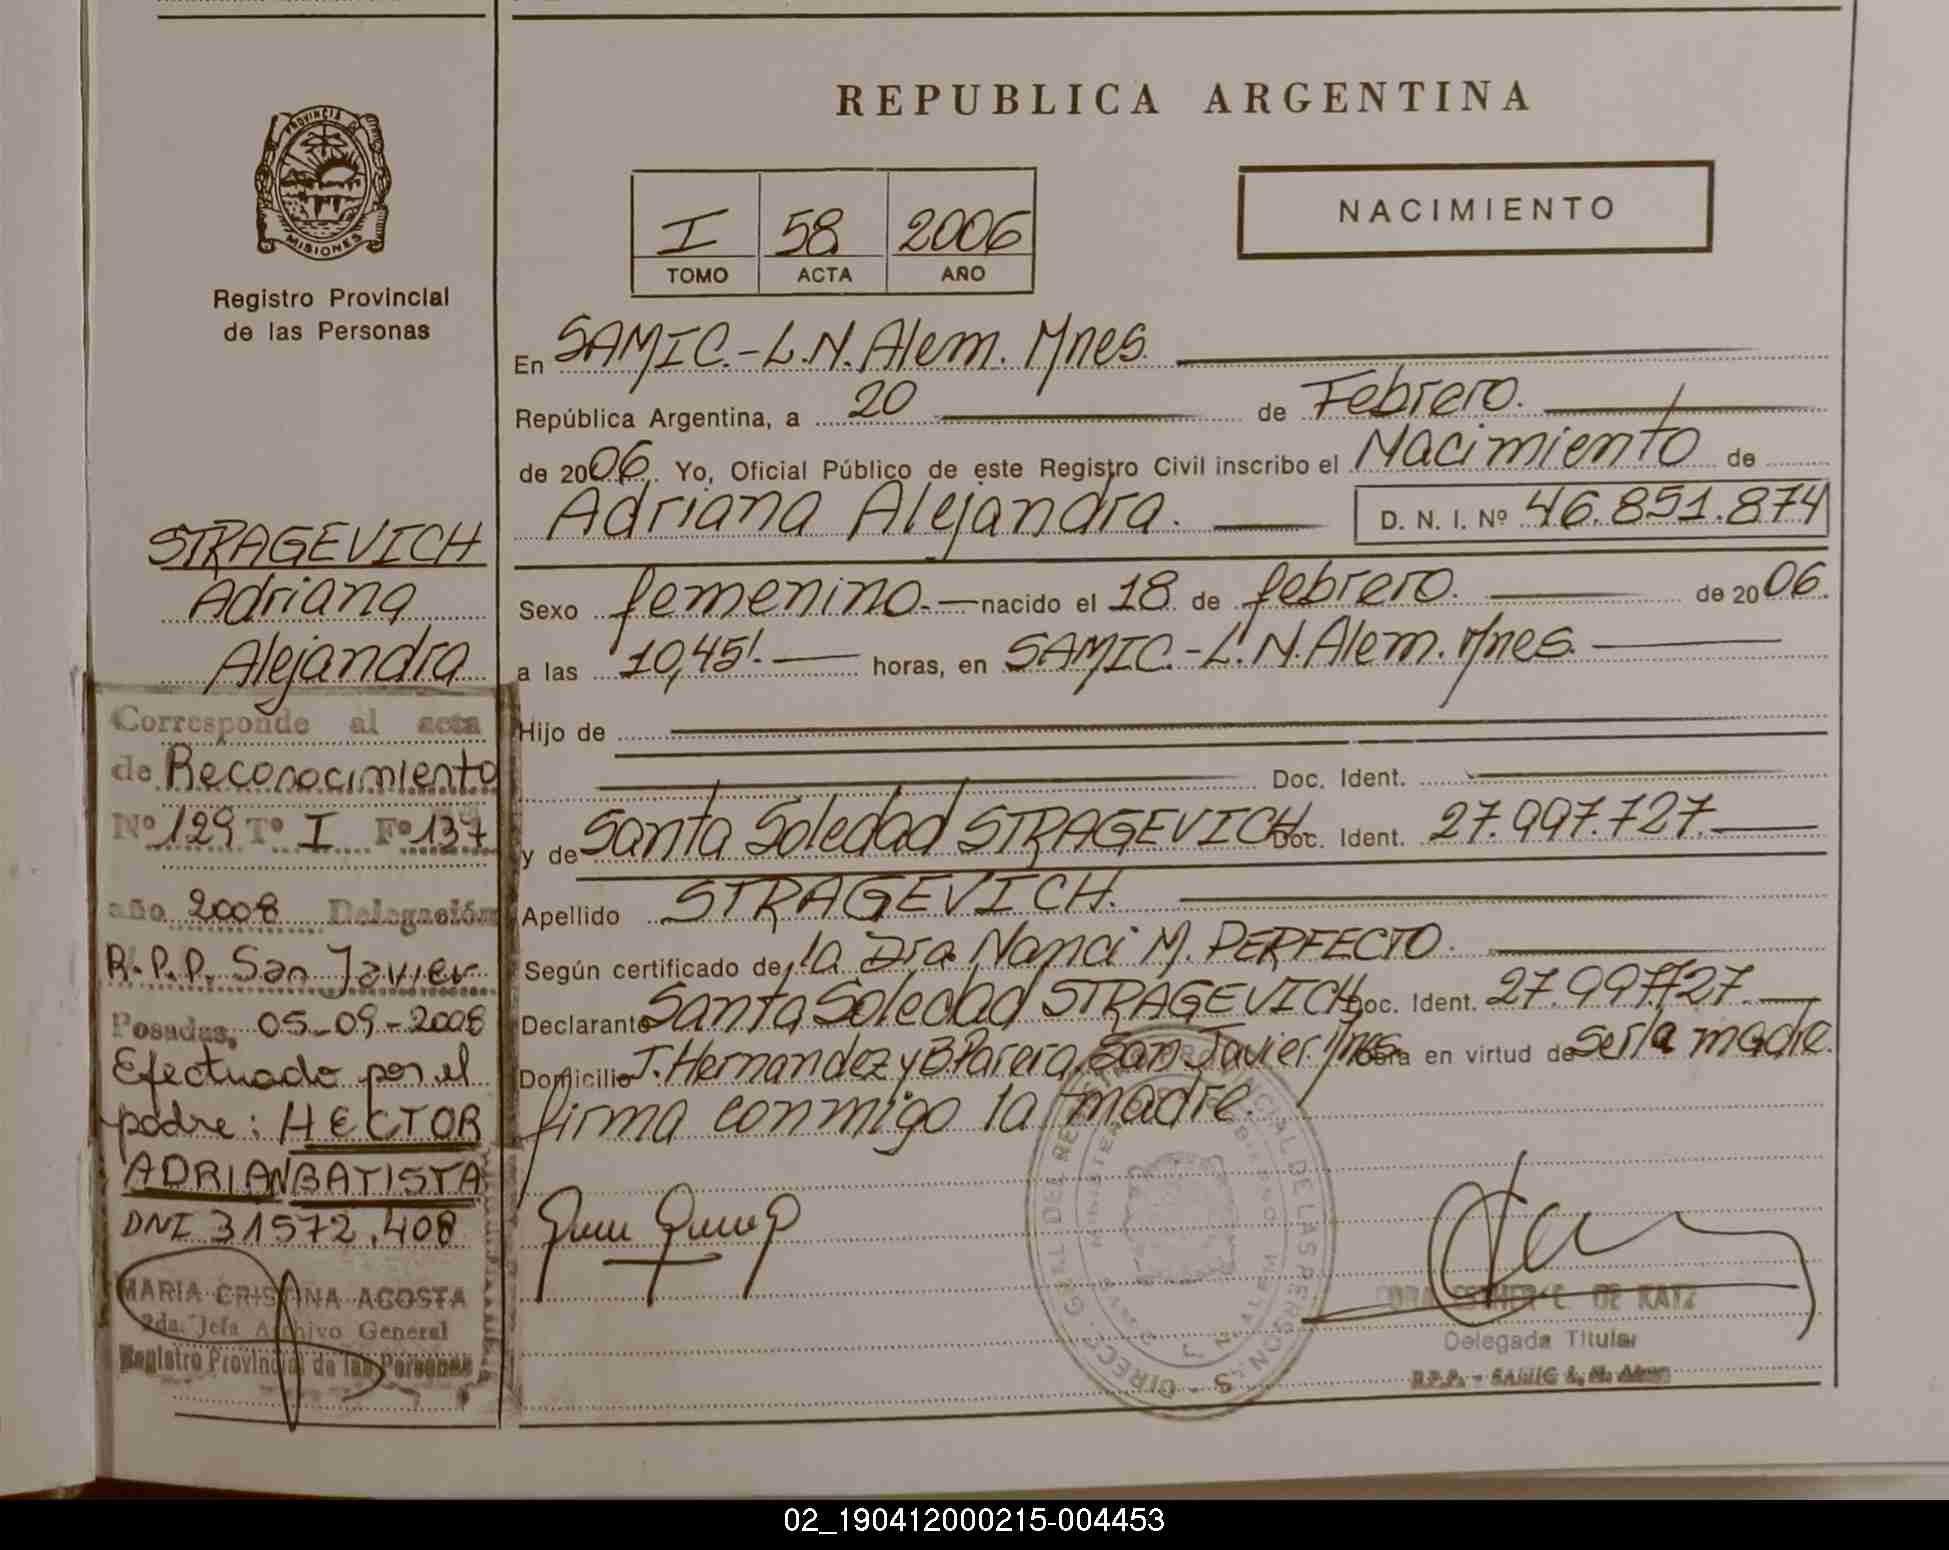 PROVINCIA DE
MISIONES
Registro Provincial
de las Personas
STRAGEVICH
Adriana
Alejandra
Corresponde al acta
de Reconocimiento
Nº 129 Tº I Fº 137
año 2008 Delegación
R.P.P. San Javier
Posadas, 05-09-2008
Efectuado por el
padre: HECTOR
ADRIAN BATISTA
DNI 31572.408
MARIA CRISTINA ACOSTA
2da. Jefa Archivo General
Registro Provincial de las Personas
REPUBLICA ARGENTINA
I 58 2006
TOMO ACTA AÑO
NACIMIENTO
En SAMIC.-L.N.Alem. Mnes.
República Argentina, a 20 de Febrero.
de 2006. Yo, Oficial Público de este Registro Civil inscribo el Nacimiento de
Adriana Alejandra. D. N. I. Nº 46.851.874
Sexo femenino.- nacido el 18 de febrero. de 2006.
a las 10,45'. horas, en SAMIC.-L.N.Alem. Mnes.
Hijo de
Doc. Ident.
y de Santa Soledad STRAGEVICH Doc. Ident. 27.997.727.
Apellido STRAGEVICH.
Según certificado de la Dra. Nanci M. PERFECTO.
Declarante Santa Soledad STRAGEVICH Doc. Ident. 27.997.727.
Domicilio J. Hernandez y B Parera. San Javier. Mnes. Obra en virtud de ser la madre.
firma conmigo la madre.
DIRECC. GRAL DEL REGISTRO PROVINCIAL DE LAS PERSONAS
L. N. ALEM
ESTHER C. DE KATZ
Delegada Titular
R.P.P. - SAMIC L. N. Alem
02_190412000215-004453